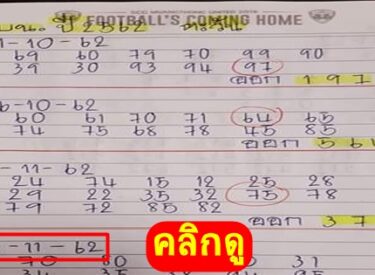 SCG MUANGTHONG UNITED 2019
FOOTBALL'S COMING HOME
ปี 2562
1-10-62
69 60 79 70 99 90
39 30 93 94 97
ออก 197
6-10-62
60 61 70 71 64 65
74 75 68 78 45 85
ออก 561
-11-62
24 74 15 12 25 28
29 22 35 32 75 78
79 72 85 82
ออก 37
-11-62
คลิกดู
70 80 31